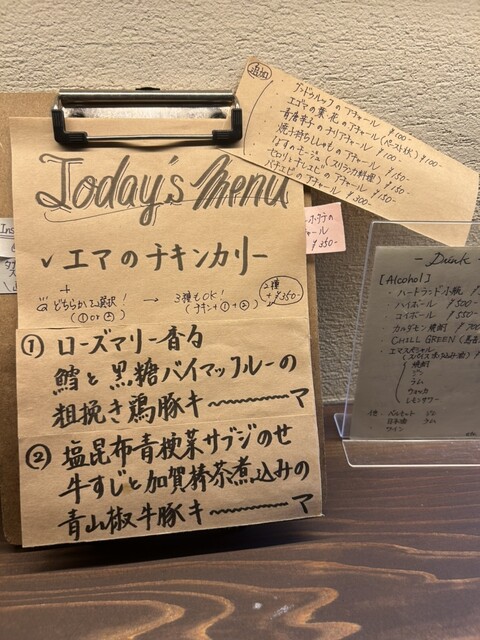 Today's menu
✓ エマのチキンカリー
+
どちらか1つ選択! → 3種もOK! 2種
(①or②) (チキン+①+②) +¥350-
① ローズマリー香る
鱈と黒糖バイマックルーの
粗挽き鶏豚キ〜〜〜マ
② 塩昆布青梗菜サブジのせ
牛すじと加賀棒茶煮込みの
青山椒牛豚キ〜〜〜マ
追加
のアチャール ¥100-
エゴマの葉・花のアチャール(ペースト状) ¥100-
青唐辛子のチリアチャール ¥100-
焼子持ちししゃものアチャール ¥150-
なすのモージュ(スリランカ料理) ¥150-
のアチャール ¥150-
のアチャール ¥300-
ホタテの
チャール
¥350-
- Drink -
[Alcohol]
・ハートランド小瓶
・ハイボール ¥500-
・コイボール ¥550-
・カルダモン焼酎 ¥700
・CHILL GREEN
・エマスペシャル
焼酎
ジン
ラム
ウォッカ
レモンサワー
日本酒 ラム
ワイン